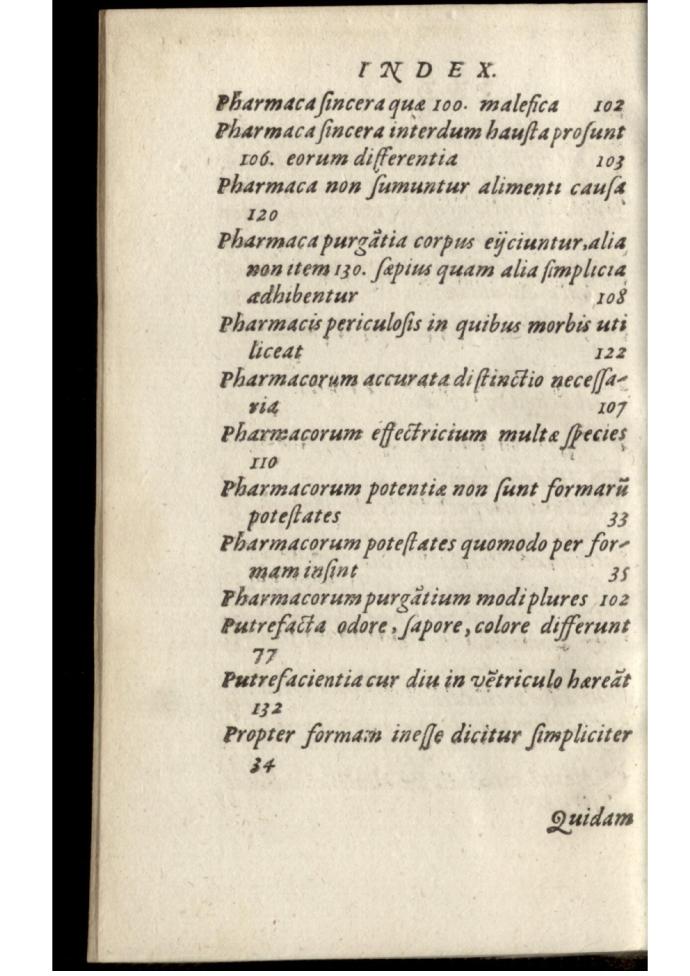 INDEX.
Pharmaca ſincera quæ 100. malefica 102
Pharmaca ſincera interdum hauſta proſunt
106. eorum differentia 103
Pharmaca non ſumuntur alimenti cauſa
120
Pharmaca purgãtia corpus eijciuntur, alia
non item 130. ſæpius quam alia ſimplicia
adhibentur 108
Pharmacis periculoſis in quibus morbis uti
liceat 122
Pharmacorum accurata diſtinctio neceſſa-
ria 107
Pharmacorum effectricium multæ ſpecies
110
Pharmacorum potentiæ non ſunt formarũ
poteſtates 33
Pharmacorum poteſtates quomodo per for-
mam inſint 35
Pharmacorum purgãtium modi plures 102
Putrefacta odore, ſapore, colore differunt
77
Putrefacientia cur diu in vẽtriculo hæreãt
132
Propter formam ineſſe dicitur ſimpliciter
34
Quidam